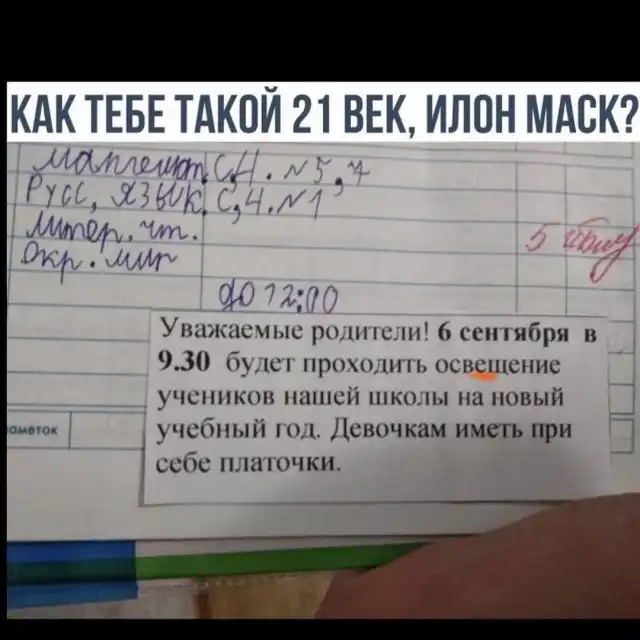 КАК ТЕБЕ ТАКОЙ 21 ВЕК, ИЛОН МАСК?
Математ. С,4. №5,7
Русс, язык. С,4. №1
Литер. чт.
5
Окр. мир
до 12:00
Уважаемые родители! 6 сентября в
9.30 будет проходить освещение
учеников нашей школы на новый
учебный год. Девочкам иметь при
себе платочки.